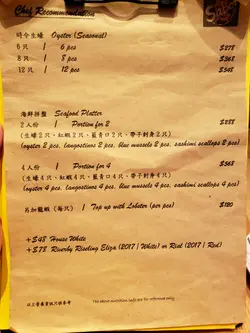 Chef Recommendation
時令生蠔 Oyster (Seasonal)
6 只 / 6 pcs $278
8 只 / 8 pcs $368
12 只 / 12 pcs $548
海鮮拼盤 Seafood Platter
2 人份 / Portion for 2 $288
(生蠔 2 只、紅蝦 2 只、藍青口 2 只、帶子刺身 2 只)
(oyster 2 pcs, langostinos 2 pcs, blue mussels 2 pcs, sashimi scallops 2 pcs)
4 人份 / Portion for 4 $568
(生蠔 4 只、紅蝦 4 只、藍青口 4 只、帶子刺身 4 只)
(oyster 4 pcs, langostinos 4 pcs, blue mussels 4 pcs, sashimi scallops 4 pcs)
另加龍蝦 (每只) / Top up with Lobster (per pcs) $120
+$48 House White
+$78 Riverby Riesling Eliza (2017 | White) or Rist (2017 | Red)
以上營養資訊只供參考 The above nutrition info are for reference only